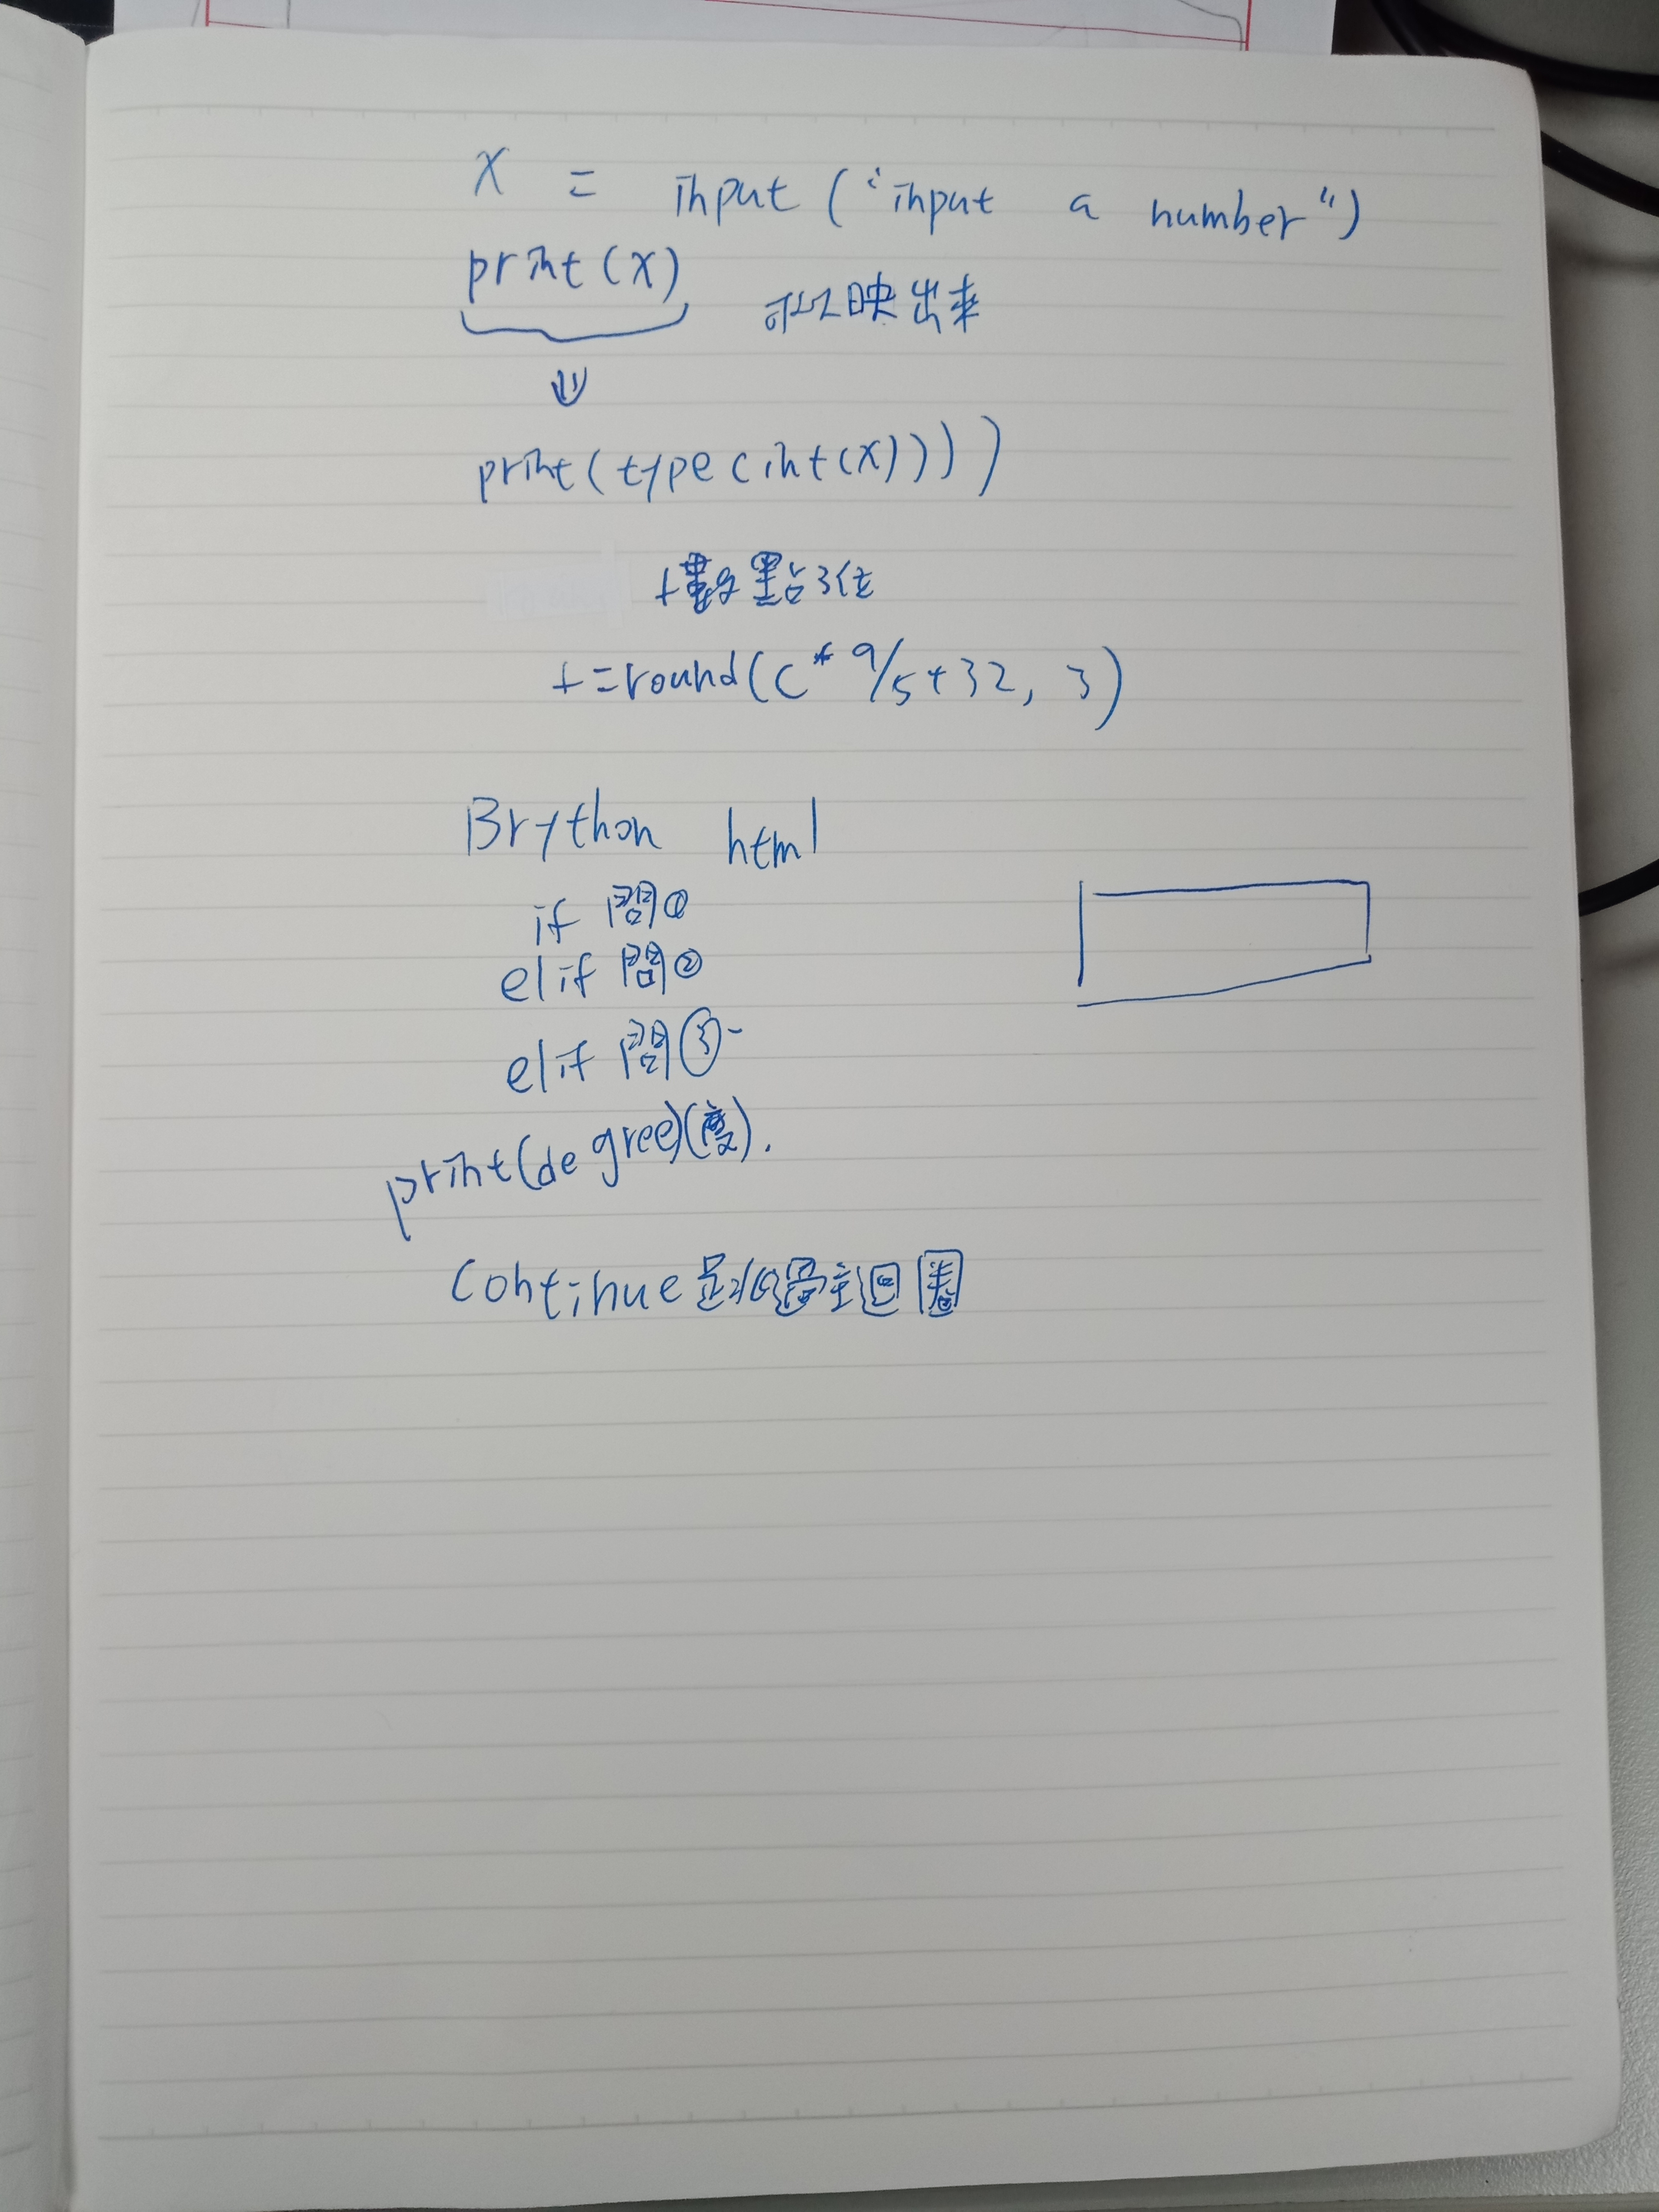 X = input ("input a number")
print(X) 可以映出來
print(type(int(X))))
小數點3位
t=round(C*9/5+32, 3)
Brython html
if 問①
elif 問②
elif 問③
print(degree)(度).
Continue 是 主迴圈